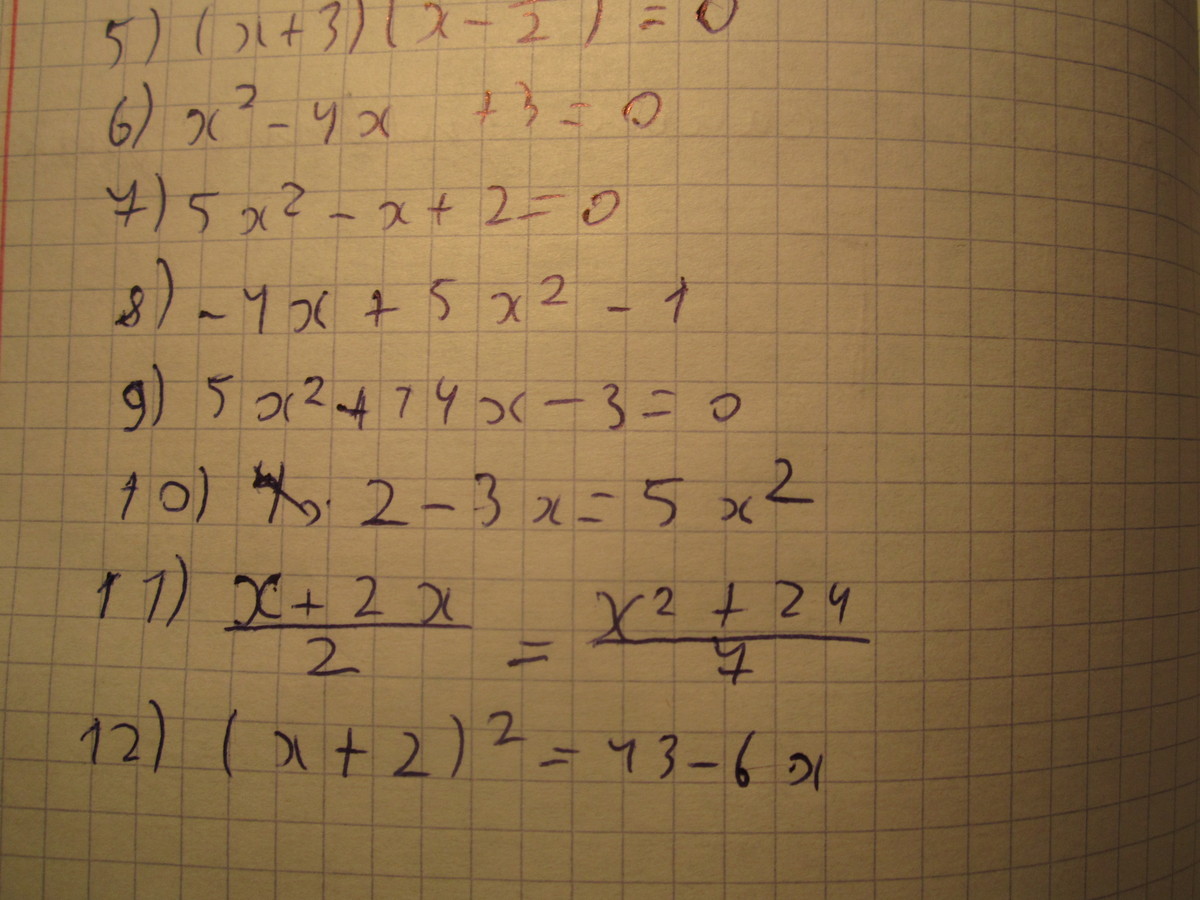 5) (x+3)(x-2) = 0
6) x² - 4x + 3 = 0
7) 5x² - x + 2 = 0
8) -4x + 5x² - 1
9) 5x² + 14x - 3 = 0
10) 2 - 3x = 5x²
11) (x + 2x)/2 = (x² + 24)/7
12) (x + 2)² = 43 - 6x